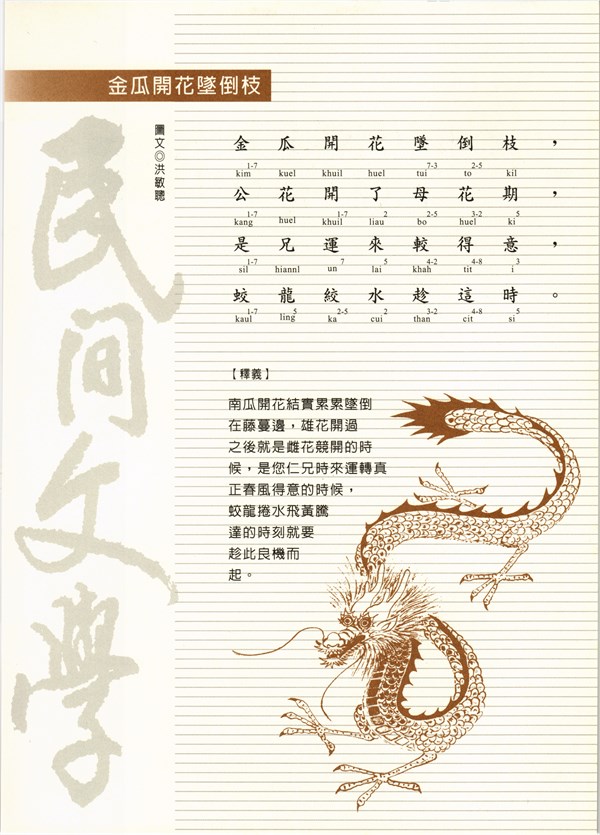 金瓜開花墜倒枝
圖文◎洪敏聰
民間文學
金瓜開花墜倒枝，
1-7 7-3 2-5
kim kuel khuil huel tui to kil
公花開了母花期，
1-7 1-7 2 2-5 3-2 5
kang huel khuil liau bo huel ki
是兄運來較得意，
1-7 7 5 4-2 4-8 3
sil hiannl un lai khah tit i
蛟龍絞水趁這時。
1-7 5 2-5 2 3-2 4-8 5
kaul ling ka cui than cit si
【釋義】
南瓜開花結實累累墜倒
在藤蔓邊，雄花開過
之後就是雌花競開的時
候，是您仁兄時來運轉真
正春風得意的時候，
蛟龍捲水飛黃騰
達的時刻就要
趁此良機而
起。